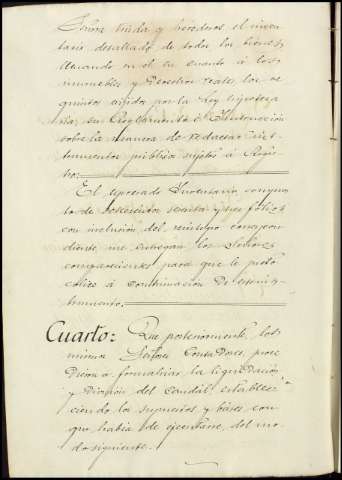 Señora viuda y herederos el inven-
tario detallado de todos los bienes,
llenando en él en cuanto á los in-
muebles y Derechos reales, los re-
quisitos exijidos por la Ley hipoteca-
ria, su Reglamento é Instrucción
sobre la manera de redactar ins-
trumentos públicos sujetos á Regis-
tro.
El expresado Inventario, compues-
to de doscientos setenta y tres folios
con inclusión del reintegro correspon-
diente, me entregan los Señores
comparecientes para que lo proto-
colice á continuación De este ins-
trumento.
Cuarto: Que posteriormente, los
mismos Señores Contadores, proce-
dieron a formalizar la liquidación
y División del Caudal, estable-
ciendo los supuestos y bases con
que había de ejecutarse, del mo-
do siguiente.